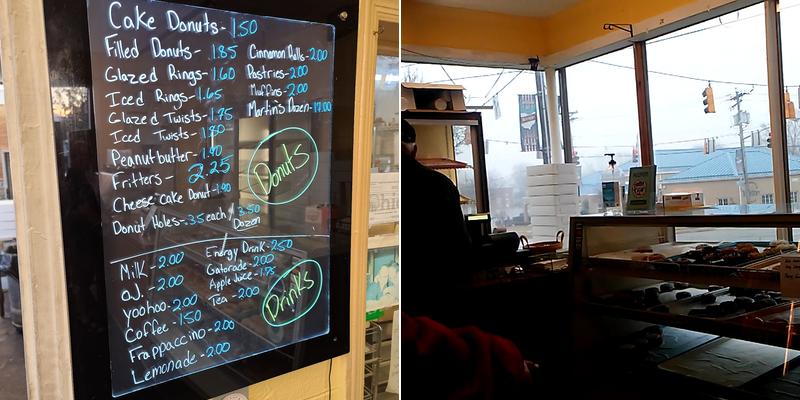 Cake Donuts - 1.50
Filled Donuts - .185
Glazed Rings - 1.60
Iced Rings - 1.65
Glazed Twists - 1.75
Iced Twists - 1.80
Peanut butter - 1.90
Fritters - 2.25
Cheese cake Donut - 1.90
Donut Holes - .35 each / 3.50 Dozen
Cinnamon Rolls - 2.00
Pastries - 2.00
Muffins - 2.00
Martin's Dozen - 17.00
Donuts
Milk - 2.00
O.J. - 2.00
yoohoo - 2.00
Coffee - 1.50
Frappaccino - 2.00
Lemonade - 2.00
Energy Drink - 2.50
Gatorade - 2.00
Apple Juice - 1.75
Tea - 2.00
Drinks